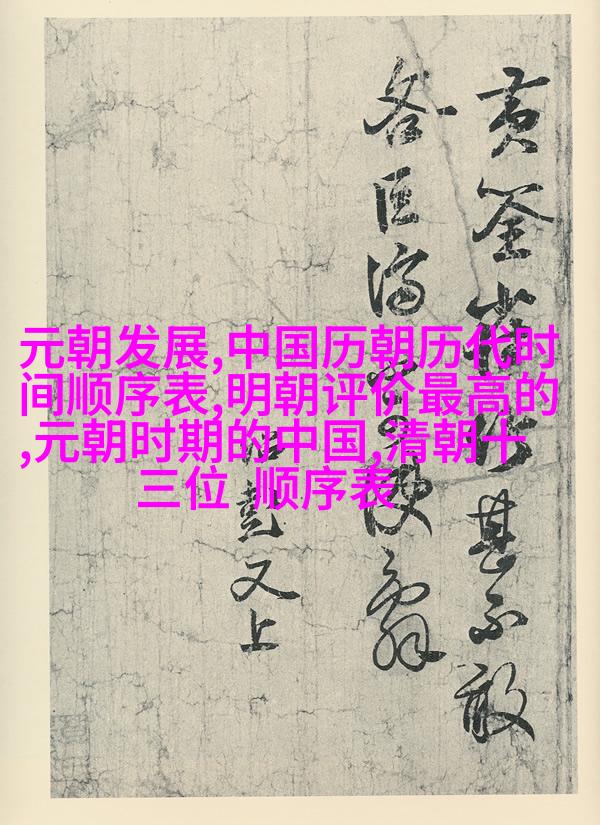 元朝发展,中国历朝历代时
间顺序表,明朝评价最高的
,元朝时期的中国,清朝十
三位 顺序表
黄筌甚不敢
又上